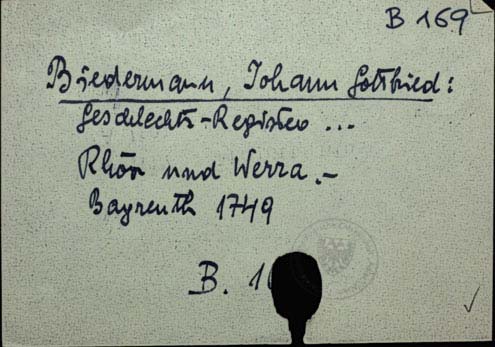 B 169
Biedermann, Johann Gottfried:
Geschlechts-Register ...
Rhön und Werra.-
Bayreuth 1749
B. 1